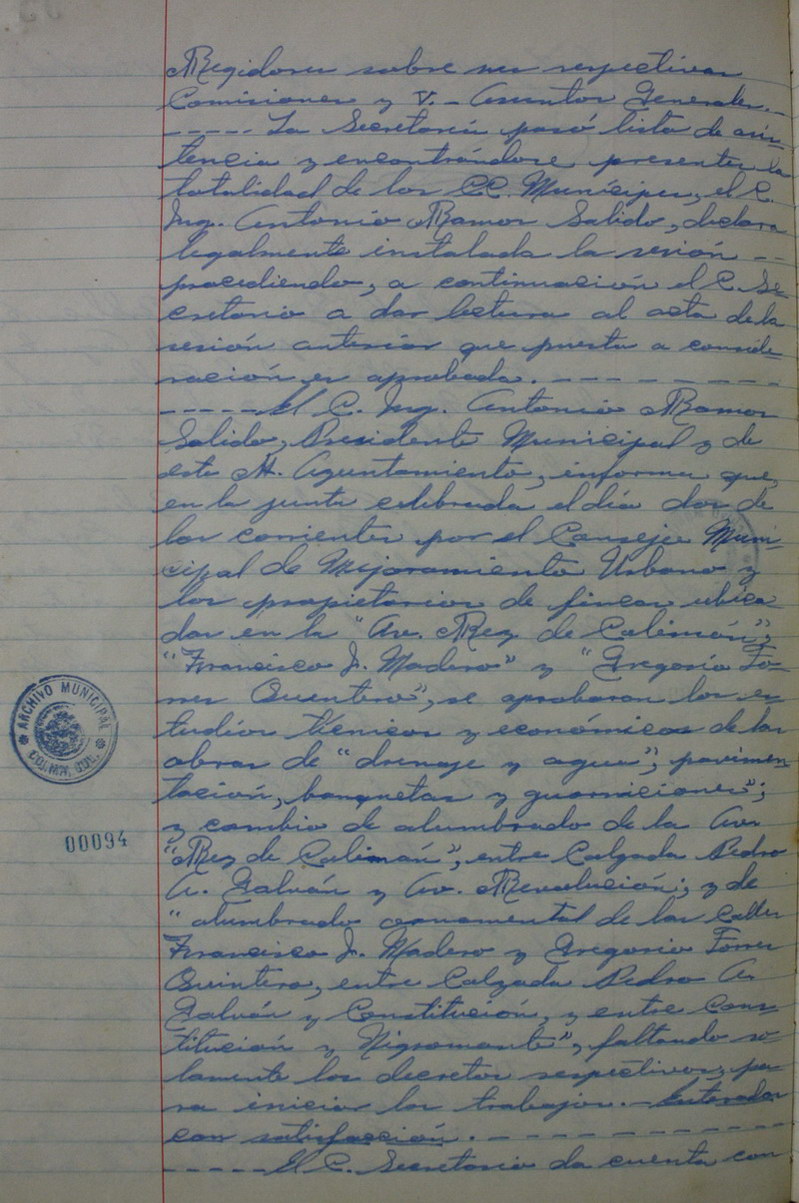 Regidores sobre sus respectivas
Comisiones y V.- Asuntos Generales.-
----- La Secretaría pasó lista de asis-
tencia y encontrándose presentes la
totalidad de los CC. Munícipes, el C.
Ing. Antonio Ramos Salido, declara
legalmente instalada la sesión --
procediendo, a continuación el C. Se-
cretario a dar lectura al acta de la
sesión anterior que puesta a conside-
ración es aprobada. - - - - - - - - -
----- El C. Ing. Antonio Ramos
Salido, Presidente Municipal y de
este H. Ayuntamiento, informa que,
en la junta celebrada el día dos de
los corrientes por el Consejo Muni-
cipal de Mejoramiento Urbano y
los propietarios de fincas ubica-
das en la "Av. Rey de Colimán";
"Francisco I. Madero" y "Gregorio To-
rres Quintero", se aprobaron los es-
tudios técnicos y económicos de las
obras de "drenaje y agua"; pavimen-
tación, banquetas y guarniciones";
y cambio de alumbrado de la Av.
"Rey de Colimán", entre Calzada Pedro
A. Galván y Av. Revolución; y de
"alumbrado ornamental de las calles
Francisco I. Madero y Gregorio Torres
Quintero, entre Calzada Pedro A.
Galván y Constitución, y entre Cons-
titución y Nigromante", faltando so-
lamente los decretos respectivos, pa-
ra iniciar los trabajos.- Enterados
con satisfacción. - - - - - - - - - -
----- El C. Secretario da cuenta con
ARCHIVO MUNICIPAL
COLIMA, COL.
00094